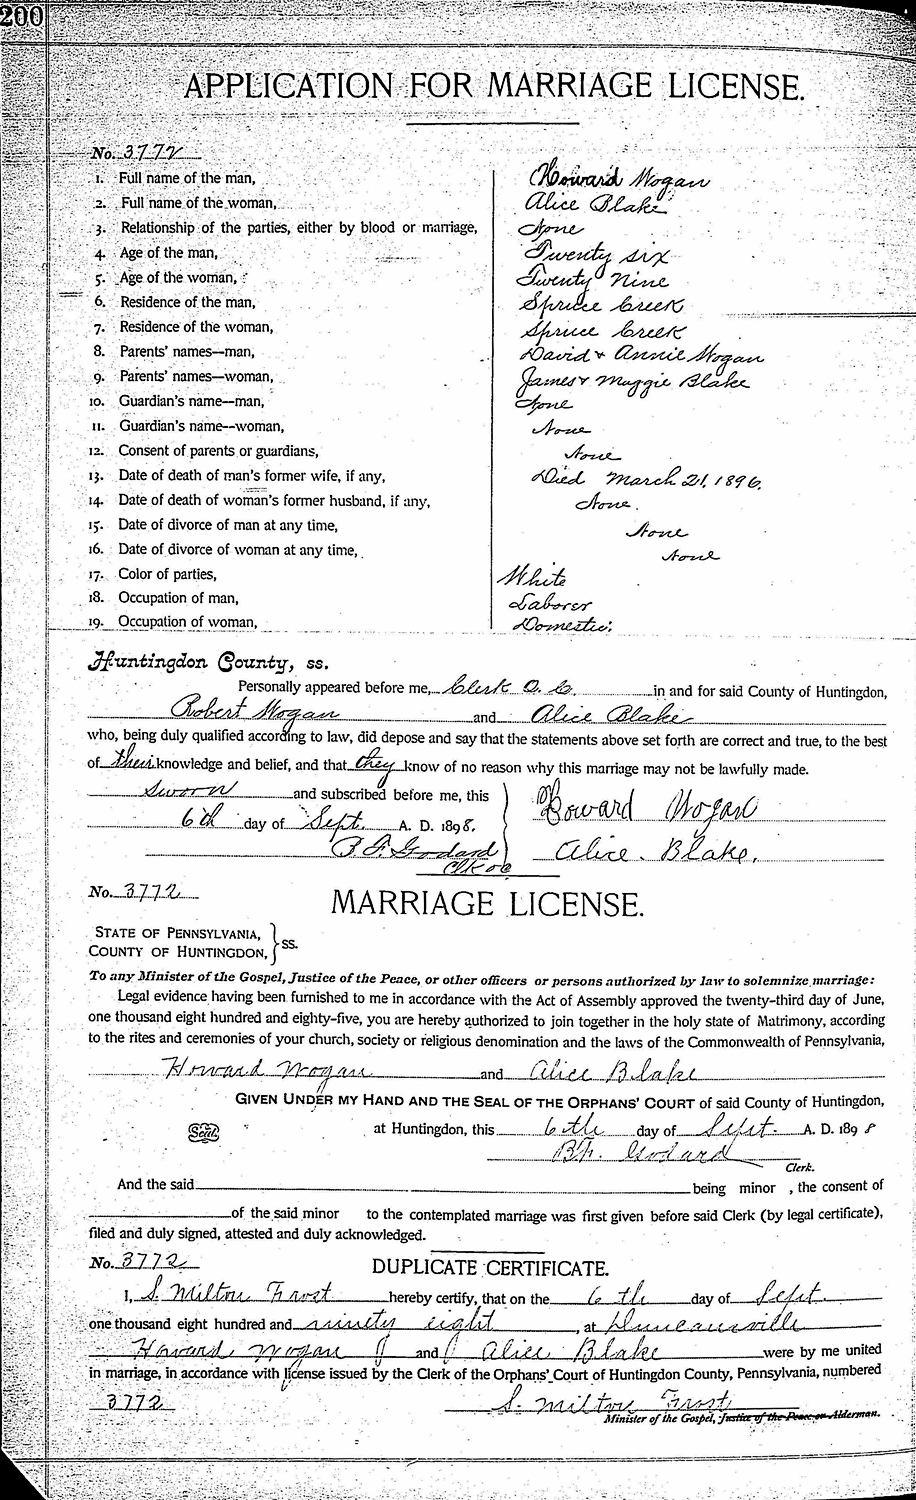 200
APPLICATION FOR MARRIAGE LICENSE.
No. 3772
1. Full name of the man, Howard Wogan
2. Full name of the woman, Alice Blake
3. Relationship of the parties, either by blood or marriage, None
4. Age of the man, Twenty six
5. Age of the woman, Twenty Nine
6. Residence of the man, Spruce Creek
7. Residence of the woman, Spruce Creek
8. Parents' names—man, David & Annie Wogan
9. Parents' names—woman, James & Maggie Blake
10. Guardian's name—man, None
11. Guardian's name—woman, None
12. Consent of parents or guardians, None
13. Date of death of man's former wife, if any, Died March 21, 1896.
14. Date of death of woman's former husband, if any, None.
15. Date of divorce of man at any time, None
16. Date of divorce of woman at any time, None
17. Color of parties, White
18. Occupation of man, Laborer
19. Occupation of woman, Domestic.
Huntingdon County, ss.
Personally appeared before me, Clerk O. C. in and for said County of Huntingdon,
Robert Wogan and Alice Blake
who, being duly qualified according to law, did depose and say that the statements above set forth are correct and true, to the best
of their knowledge and belief, and that they know of no reason why this marriage may not be lawfully made.
Sworn and subscribed before me, this
6th day of Sept. A. D. 1898. Howard Wogan
B. F. Godard Alice Blake.
Clk O C
No. 3772
MARRIAGE LICENSE.
STATE OF PENNSYLVANIA,
COUNTY OF HUNTINGDON, } SS.
To any Minister of the Gospel, Justice of the Peace, or other officers or persons authorized by law to solemnize marriage:
Legal evidence having been furnished to me in accordance with the Act of Assembly approved the twenty-third day of June,
one thousand eight hundred and eighty-five, you are hereby authorized to join together in the holy state of Matrimony, according
to the rites and ceremonies of your church, society or religious denomination and the laws of the Commonwealth of Pennsylvania,
Howard Wogan and Alice Blake
GIVEN UNDER MY HAND AND THE SEAL OF THE ORPHANS' COURT of said County of Huntingdon,
Seal at Huntingdon, this 6th day of Sept. A. D. 1898
B.F. Godard
Clerk.
And the said being minor , the consent of
of the said minor to the contemplated marriage was first given before said Clerk (by legal certificate),
filed and duly signed, attested and duly acknowledged.
No. 3772
DUPLICATE CERTIFICATE.
I, S. Milton Frost hereby certify, that on the 6th day of Sept.
one thousand eight hundred and ninety eight, at Duncansville
Howard Wogan and Alice Blake were by me united
in marriage, in accordance with license issued by the Clerk of the Orphans' Court of Huntingdon County, Pennsylvania, numbered
3772 S. Milton Frost
Minister of the Gospel, Justice of the Peace or Alderman.